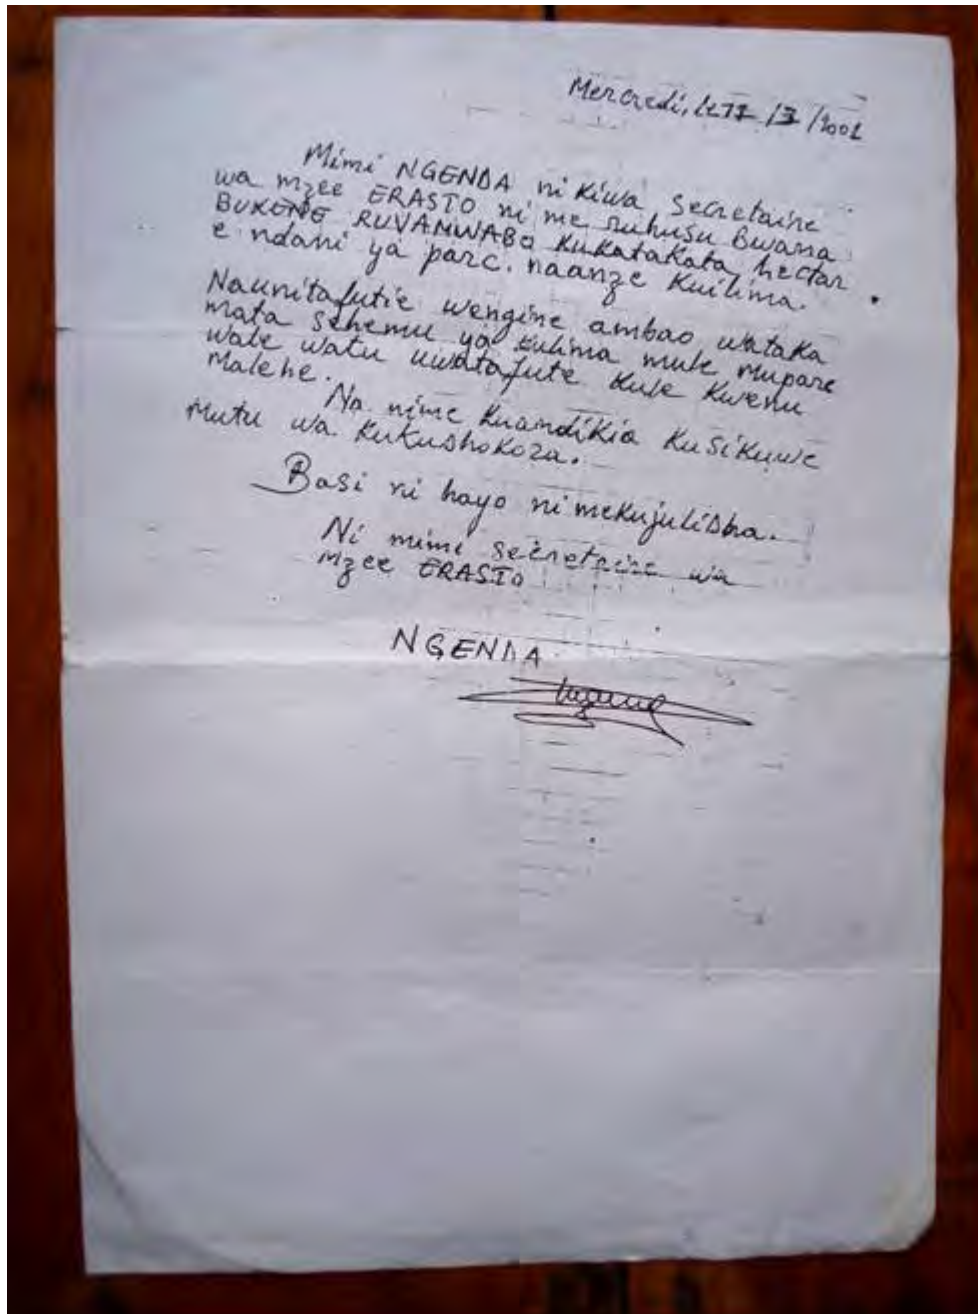 Mercredi, le /3/2001
Mimi NGENDA ni kiwa secretaire
wa mzee ERASTO ni me ruhusu Bwana
BUKENE RUVAMWABO kukatakata hectar
e ndani ya parc. naanze kuilima.
Naunitafutie wengine ambao wataka
mata sehemu ya kulima mule muparc
wale watu uwatafute kule kwenu
Malehe.
Na nime kuandikia kusikuwe
mutu wa kukushokoza.
Basi ni hayo ni mekujulisha.
Ni mimi secretaire wa
Mzee ERASTO
NGENDA